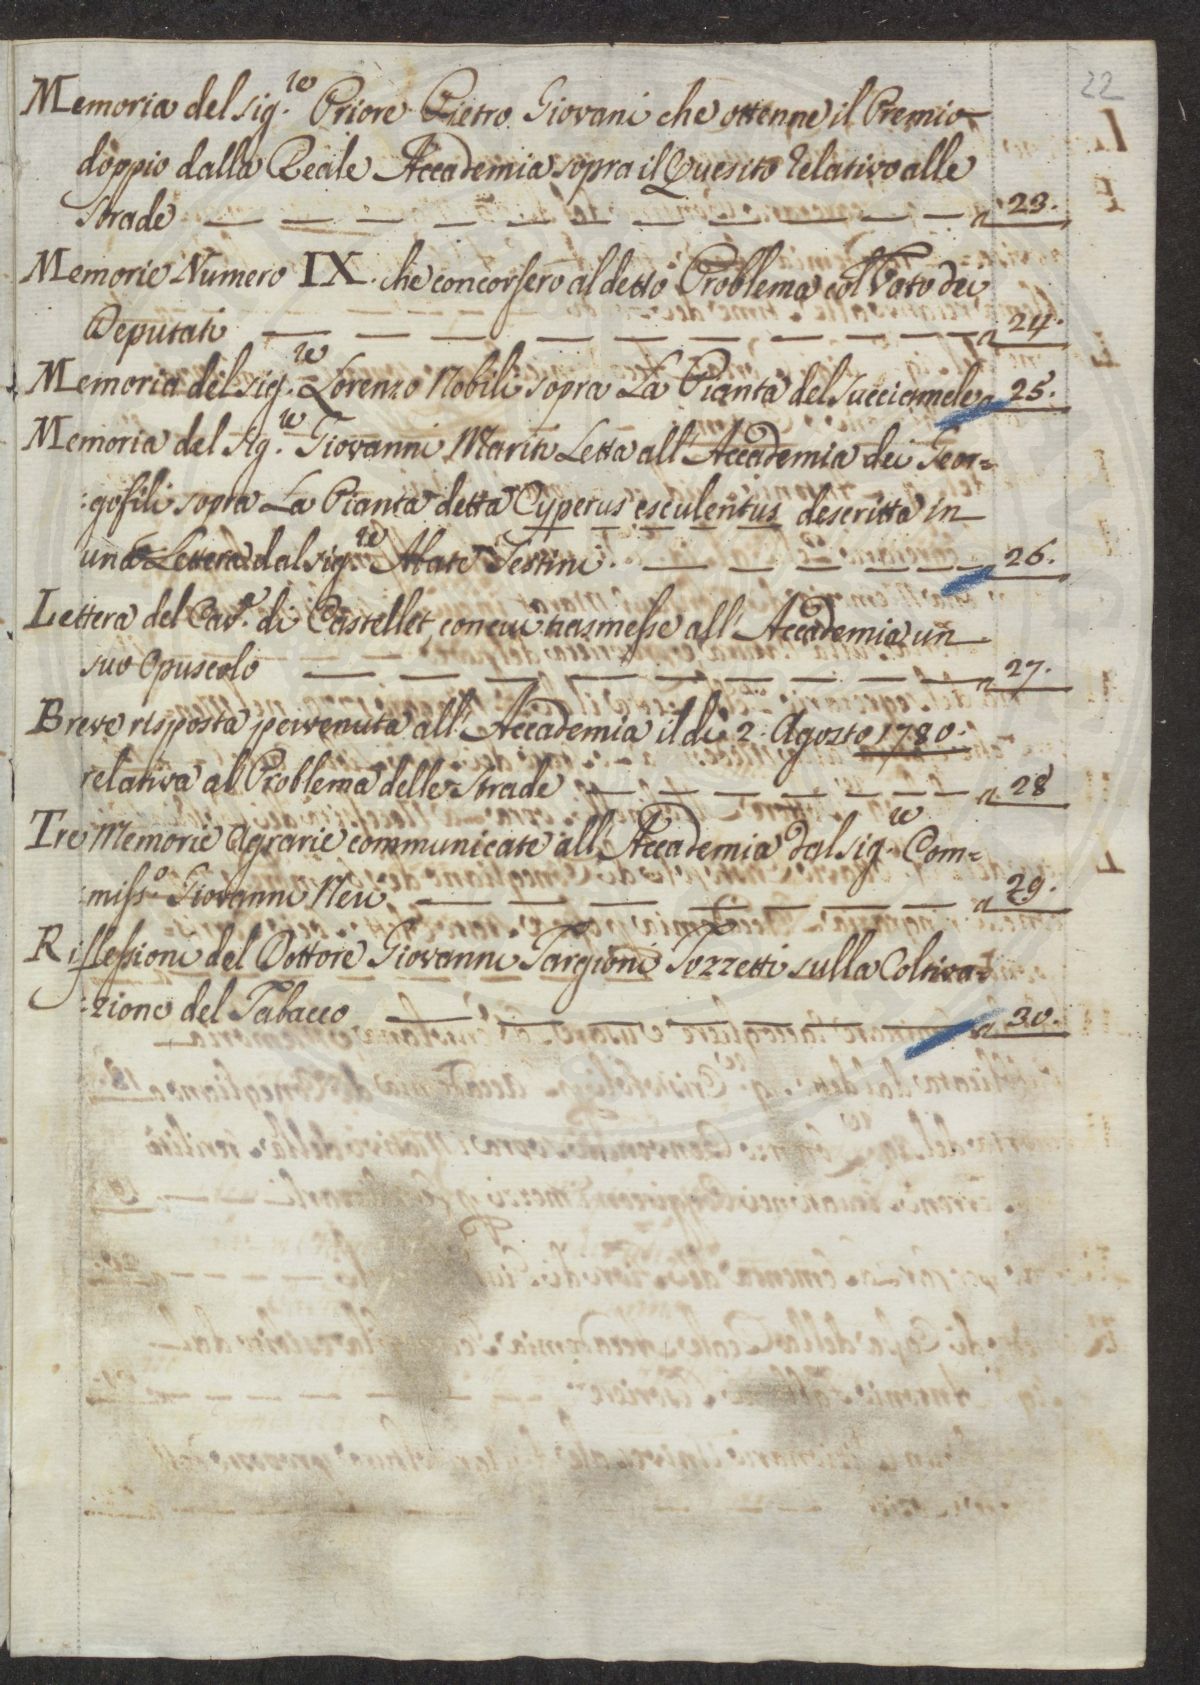 22
Memoria del sig.re Priore Pietro Giovani che ottenne il Premio
doppio dalla Reale Accademia sopra il Quesito relativo alle
strade — — — — — — — — — — n. 23.
Memorie Numero IX. che concorsero al detto Problema col Voto dei
Deputati — — — — — — — — — — n. 24.
Memoria del sig.re Lorenzo Nobili sopra La Pianta del Succiamele n. 25.
Memoria del Sig.re Giovanni Mariti Letta all' Accademia dei Geor=
:gofili sopra La Pianta detta Cyperus esculentus descritta in
una Lettera dal sig.re Abate Testini. — — — — — — 26.
Lettera del Cav.e di Castellet con cui trasmesse all' Accademia un
suo Opuscolo — — — — — — — — n. 27.
Breve risposta pervenuta all' Accademia il dì 2. Agosto 1780.
relativa al Problema delle strade — — — — — — n. 28
Tre Memorie Agrarie communicate all' Accademia dal sig.re Com=
:miss.o Giovanni Neri — — — — — — — — n. 29.
Riflessioni del Dottore Giovanni Targioni Tozzetti sulla Coltiva=
:zione del Tabacco — — — — — — n. 30.